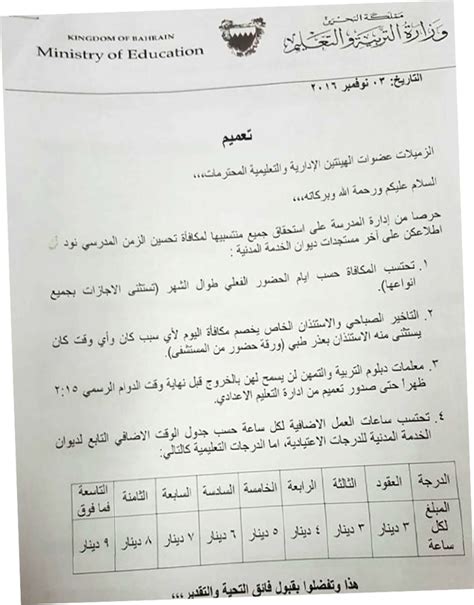 KINGDOM OF BAHRAIN
Ministry of Education
مملكة البحرين
وزارة التربية والتعليم
التاريخ: ٠٣ نوفمبر ٢٠١٦
تعميم
الزميلات عضوات الهيئتين الإدارية والتعليمية المحترمات،،،
السلام عليكم ورحمة الله وبركاته،،،
حرصا من إدارة المدرسة على استحقاق جميع منتسبيها لمكافأة تحسين الزمن المدرسي نود
اطلاعكن على أخر مستجدات ديوان الخدمة المدنية :
١. تحتسب المكافأة حسب ايام الحضور الفعلي طوال الشهر (تستثنى الاجازات بجميع
انواعها).
٢. التاخير الصباحي والاستئذان الخاص يخصم مكافأة اليوم لأي سبب كان وأي وقت كان
يستثنى منه الاستئذان بعذر طبي (ورقة حضور من المستشفى).
٣. معلمات دبلوم التربية والتمهن لن يسمح لهن بالخروج قبل نهاية وقت الدوام الرسمي ٢:١٥
ظهراً حتى صدور تعميم من ادارة التعليم الاعدادي.
٤. تحتسب ساعات العمل الاضافية لكل ساعة حسب جدول الوقت الاضافي التابع لديوان
الخدمة المدنية للدرجات الاعتيادية، اما الدرجات التعليمية كالتالي:
الدرجة العقود الثالثة الرابعة الخامسة السادسة السابعة الثامنة التاسعة
فما فوق
المبلغ
لكل
ساعة
٣ دينار ٣ دينار ٤ دينار ٥ دينار ٦ دينار ٧ دينار ٨ دينار ٩ دينار
هذا وتفضلوا بقبول فائق التحية والتقدير،،،